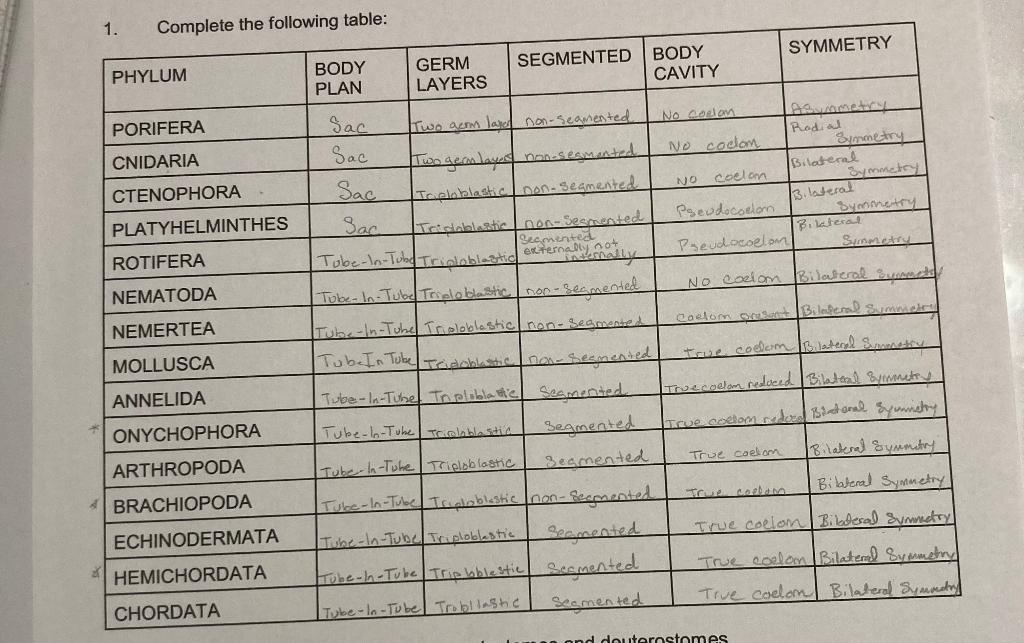 1. Complete the following table:
PHYLUM BODY PLAN GERM LAYERS SEGMENTED BODY CAVITY SYMMETRY
PORIFERA Sac Two germ layer non-segmented No coelom Asymmetry
CNIDARIA Sac Two germ layers non-segmented No coelom Radial Symmetry
CTENOPHORA Sac Triploblastic non-segmented No coelom Bilateral Symmetry
PLATYHELMINTHES Sac Triploblastic non-segmented Pseudocoelom Bilateral Symmetry
ROTIFERA Tube-In-Tube Triploblastic Segmented externally not internally Pseudocoelom Bilateral Symmetry
NEMATODA Tube-In-Tube Triploblastic non-segmented No coelom Bilateral Symmetry
NEMERTEA Tube-In-Tube Triploblastic non-segmented Coelom present Bilateral Symmetry
MOLLUSCA Tube In Tube Triploblastic non-segmented True coelom Bilateral Symmetry
ANNELIDA Tube-In-Tube Triploblastic Segmented True coelom reduced Bilateral Symmetry
* ONYCHOPHORA Tube-In-Tube Triploblastic Segmented True coelom reduced Bilateral Symmetry
ARTHROPODA Tube-In-Tube Triploblastic Segmented True coelom Bilateral Symmetry
* BRACHIOPODA Tube-In-Tube Triploblastic non-segmented True coelom Bilateral Symmetry
ECHINODERMATA Tube-In-Tube Triploblastic Segmented True coelom Bilateral Symmetry
* HEMICHORDATA Tube-In-Tube Triploblastic Segmented True coelom Bilateral Symmetry
CHORDATA Tube-In-Tube Trobllastic Segmented True coelom Bilateral Symmetry
and deuterostomes